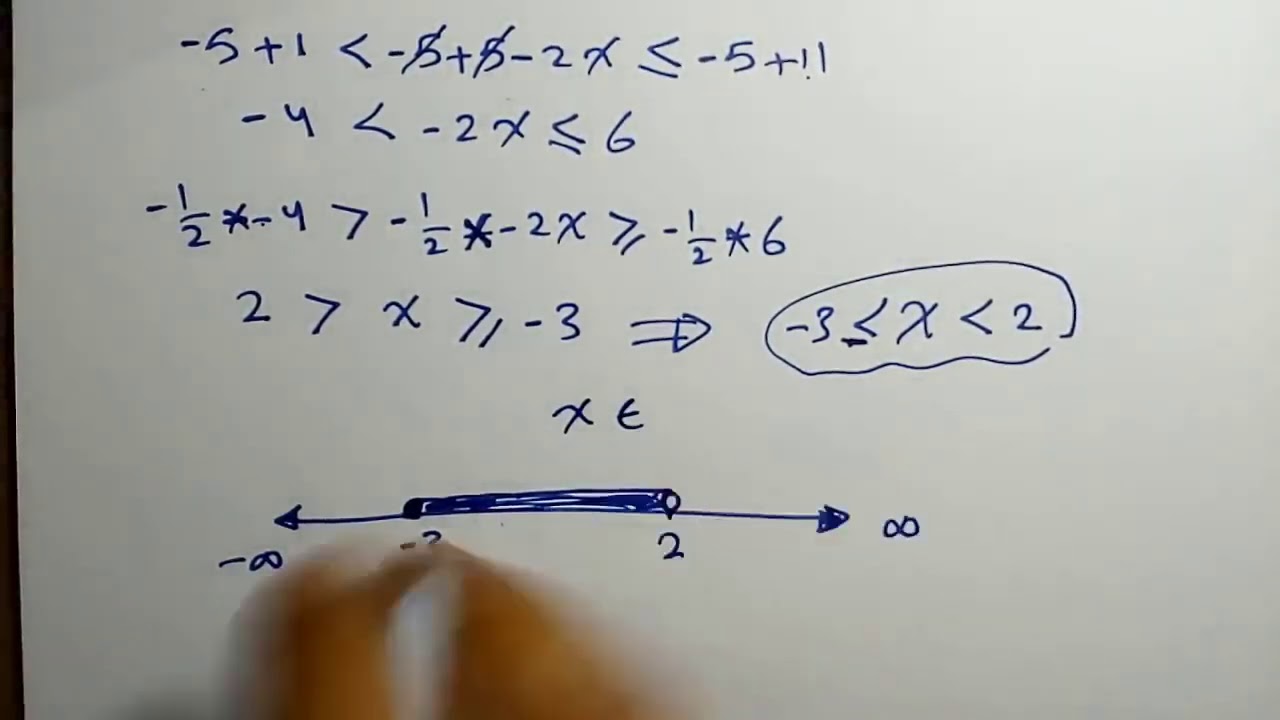 -5+1 < -5+5-2x ≤ -5+11
-4 < -2x ≤ 6
-1/2 * -4 > -1/2 * -2x ≥ -1/2 * 6
2 > x ≥ -3 ⇒ -3 ≤ x < 2
x ∈
-∞ 2 ∞